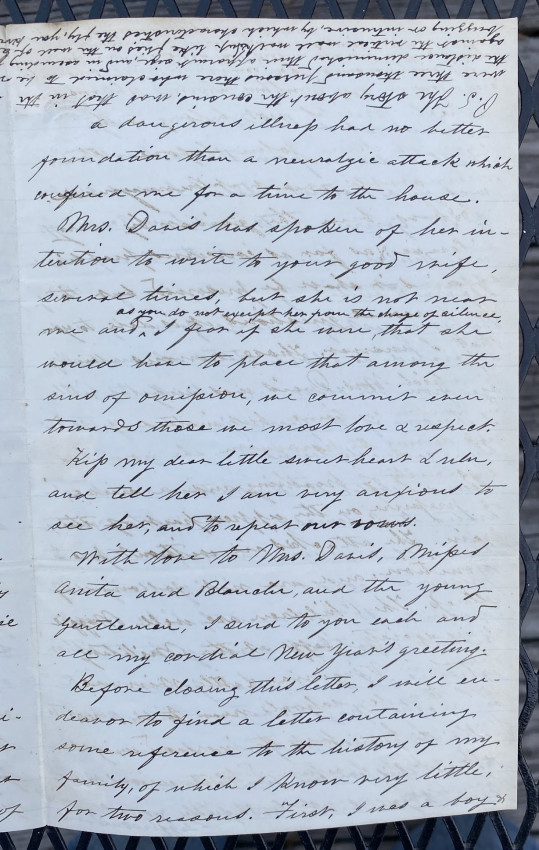 a dangerous illness had no better
foundation than a neuralgic attack which
confined me for a time to the house.
Mrs. Davis has spoken of her in-
tention to write to your good wife,
several times, but she is not near
as you do not except her from the charge of silence,
me and, I fear if she were, that she
would have to place that among the
sins of omission, we commit even
towards those we most love & respect.
Kiss my dear little sweet-heart Lulu,
and tell her I am very anxious to
see her, and to repeat our vows.
With love to Mrs. Davis, Misses
Anita and Blanche, and the young
gentlemen, I send to you each and
all my cordial New Year's greeting.
Before closing this letter, I will en-
deavor to find a letter containing
some reference to the history of my
family, of which I know very little,
for two reasons. First, I was a boy &
P.S. The story about the cousins, was that in the
were three thousand persons there who claimed to be
the distance diminished their apparent size, and in
against the male like flies on the
buzzing or intrusive, by which characteristics the fly, you